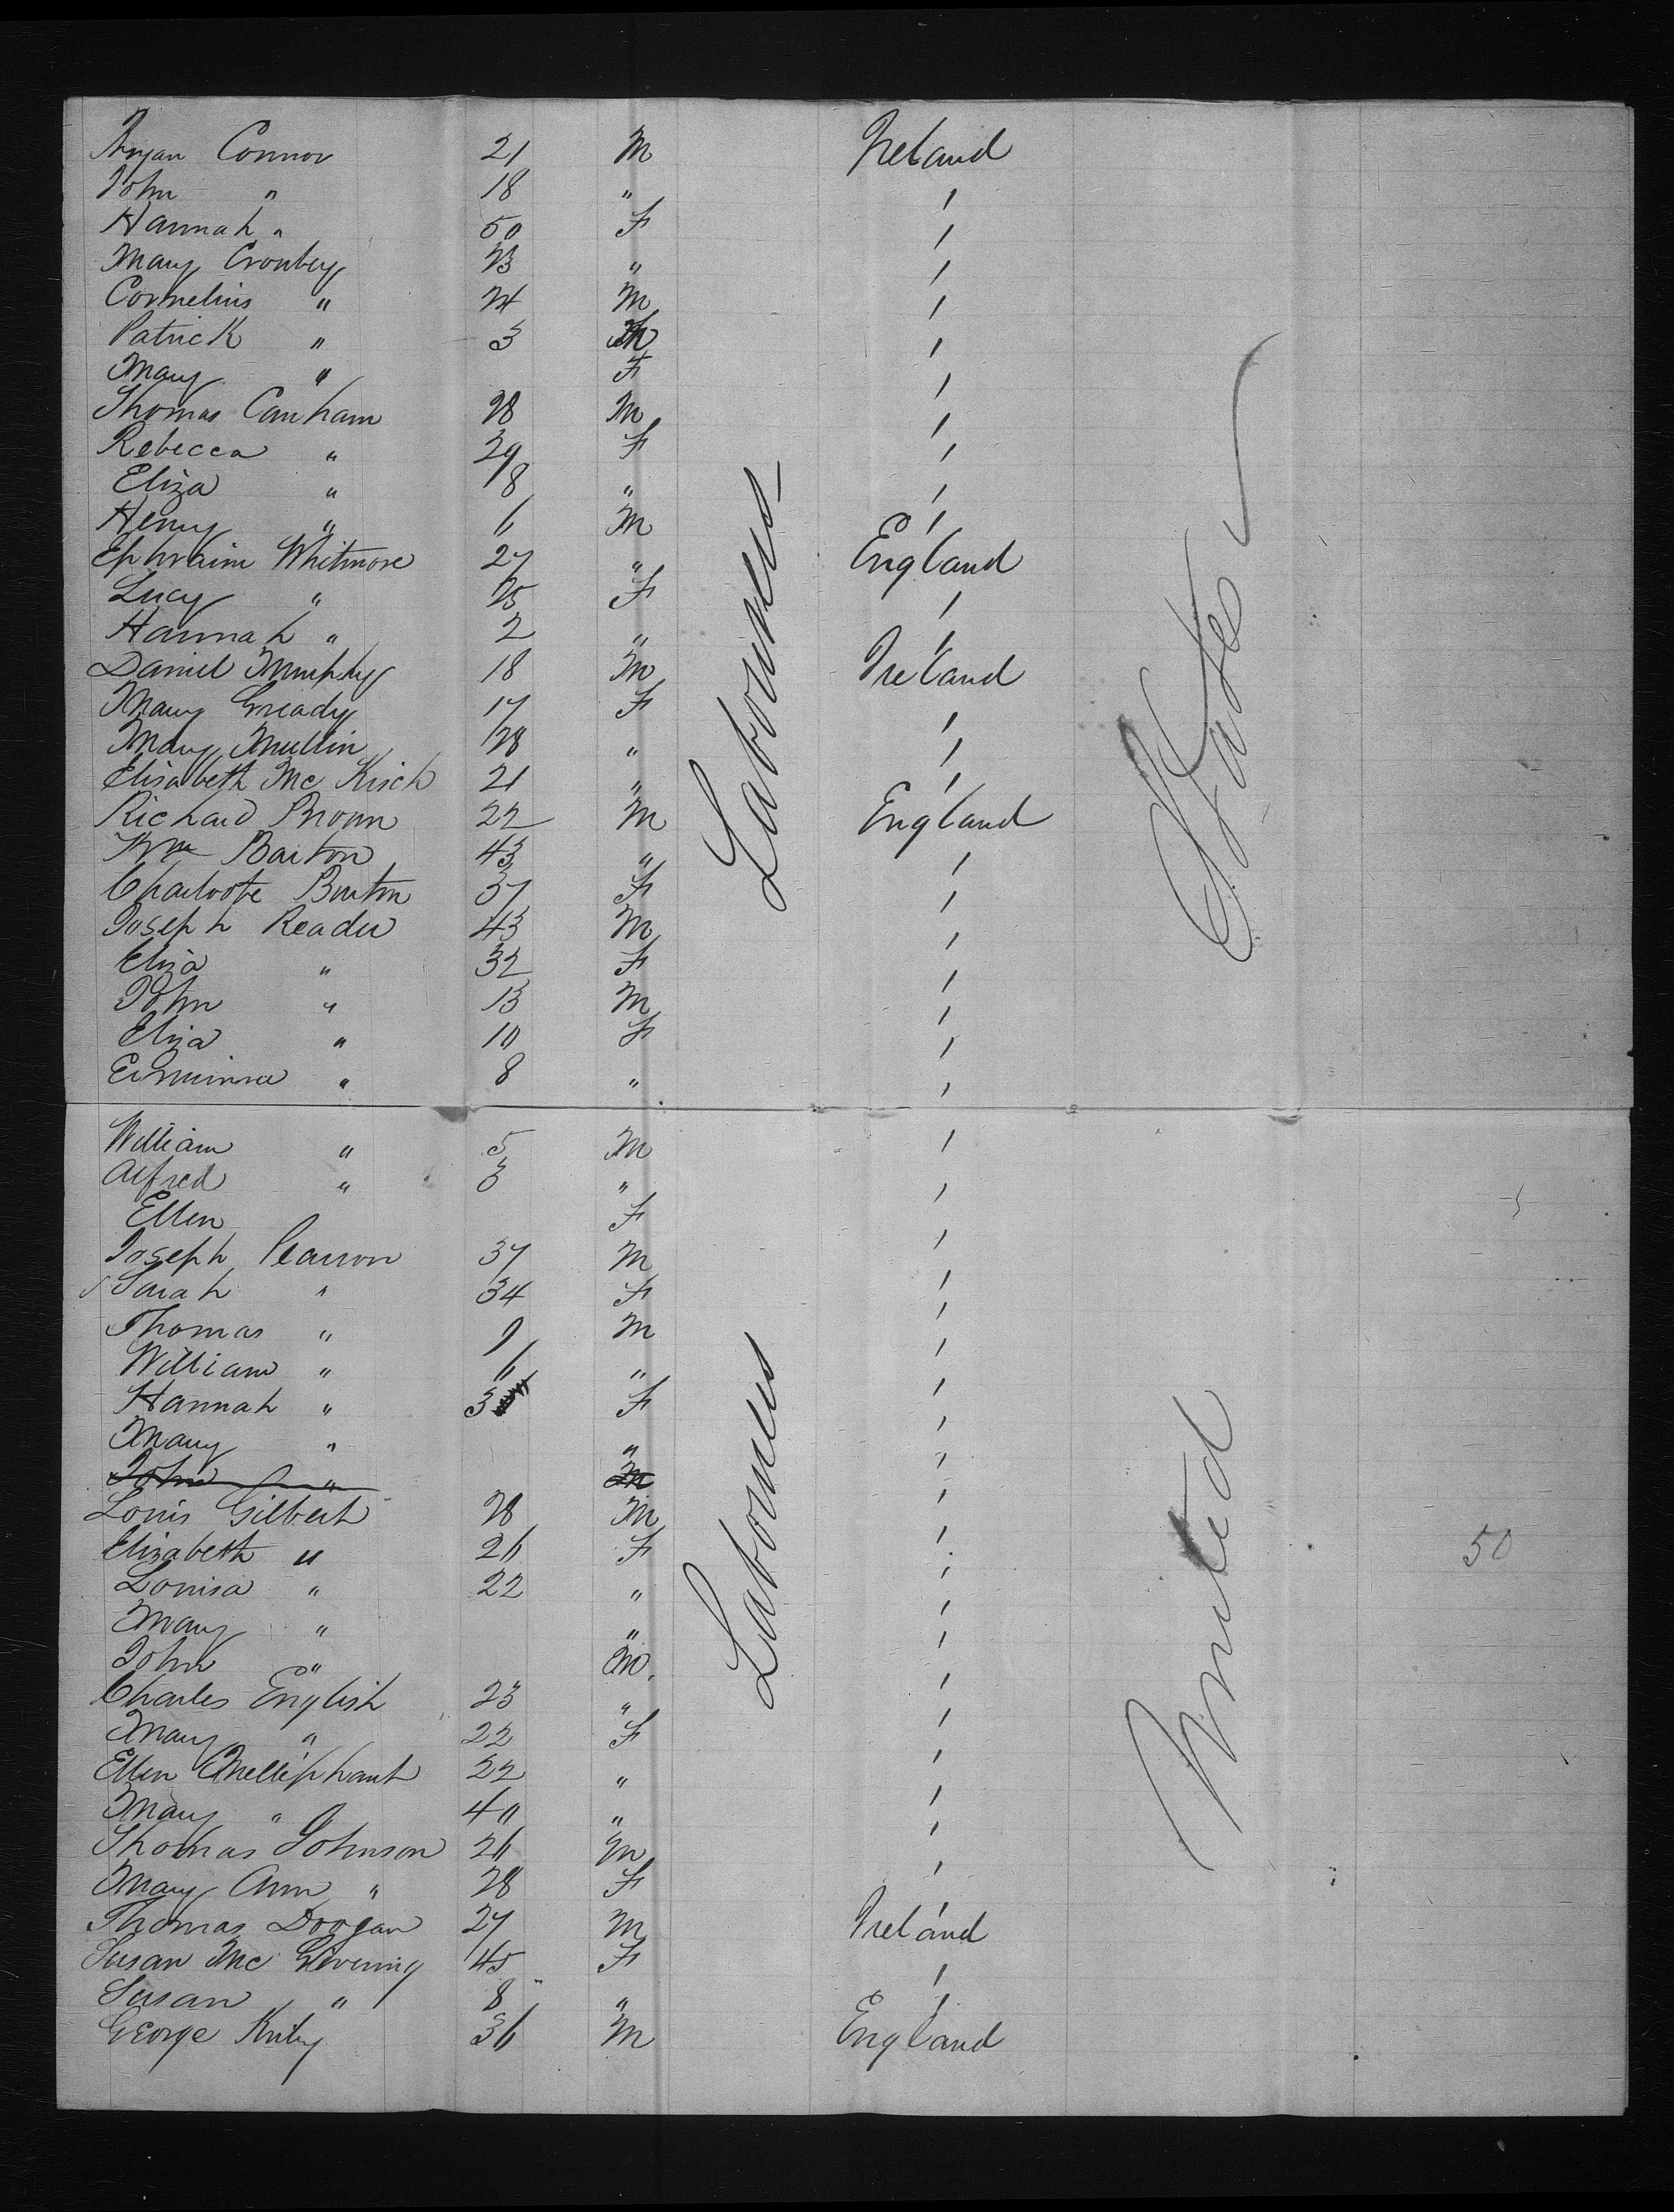 Bryan Connor 21 M Ireland
John " 18 " /
Hannah " 50 F /
Mary Cronbey 23 " /
Cornelius " 24 M /
Patrick " 3 M /
Mary " F /
Thomas Canham 28 M /
Rebecca " 29 F /
Eliza " 8 " /
Henry " 6 M /
Ephraim Whitmore 27 " England
Lucy " 25 F /
Hannah " 2 " /
Daniel Murphy 18 M Ireland
Mary Gready 17 F /
Mary Mullin 28 " /
Elisabeth Mc Kisch 21 " /
Richard Brown 22 M England
Wm Barton 43 " /
Charloote Burton 37 F /
Joseph Reader 43 M /
Eliza " 32 F /
John " 13 M /
Eliza " 10 F /
" 8 " /
William " 5 M /
Alfred " 3 " /
Ellen F /
Joseph Pearson 37 M /
Sarah " 34 F /
Thomas " 9 M /
William " 6 " /
Hannah " 3 F /
Mary " " /
John " M /
Louis Gilbert 28 M /
Elizabeth " 26 F / 50
Louisa " 22 " /
Mary " " /
John " M. /
Charles English 23 " /
Mary " 22 F /
Ellen Mellephant 22 " /
Mary " 40 " /
Thomas Johnson 26 M /
Mary Ann " 28 F /
Thomas Doogan 27 M Ireland
Susan Mc 45 F /
Susan " 8 " /
George Kirby 36 M England
Labourers
Labourers
United
States